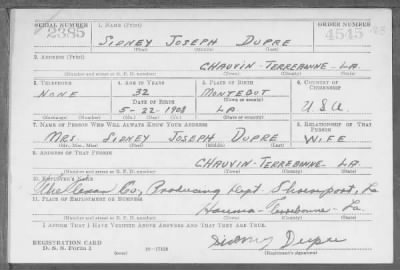 SERIAL NUMBER 1. NAME (Print) ORDER NUMBER
2385 SIDNEY JOSEPH DUPRE 4545
(First) (Middle) (Last)
2. ADDRESS (Print)
CHAUVIN - TERREBONNE - LA.
(Number and street or R. F. D. number) (Town) (County) (State)
3. TELEPHONE 4. AGE IN YEARS 5. PLACE OF BIRTH 6. COUNTRY OF CITIZENSHIP
NONE 32 MONTEGUT
DATE OF BIRTH (Town or county) USA
5-22-1908 LA
(Exchange) (Number) (Mo.) (Day) (Yr.) (State or country)
7. NAME OF PERSON WHO WILL ALWAYS KNOW YOUR ADDRESS 8. RELATIONSHIP OF THAT PERSON
MRS. SIDNEY JOSEPH DUPRE WIFE
(Mr., Mrs., Miss) (First) (Middle) (Last)
9. ADDRESS OF THAT PERSON
CHAUVIN - TERREBONNE - LA.
(Number and street or R. F. D. number) (Town) (County) (State)
10. EMPLOYER'S NAME
The Texas Co, Producing Dept. Shreveport, La
11. PLACE OF EMPLOYMENT OR BUSINESS
Houma - Terrebonne - La.
(Number and street or R. F. D. number) (Town) (County) (State)
I AFFIRM THAT I HAVE VERIFIED ABOVE ANSWERS AND THAT THEY ARE TRUE.
REGISTRATION CARD Sidney Dupre
D. S. S. Form 1 (over) 16-17105 (Registrant's signature)